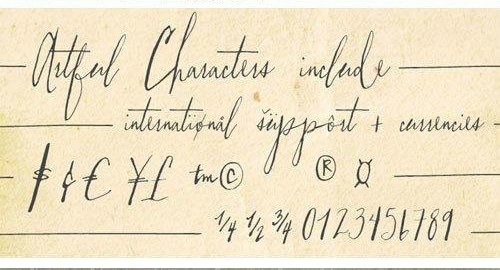 Artful Characters include
international støppôrt + currencies
$ ¢ € ¥ £ ™ © ® ¤
¼ ½ ¾ 0123456789